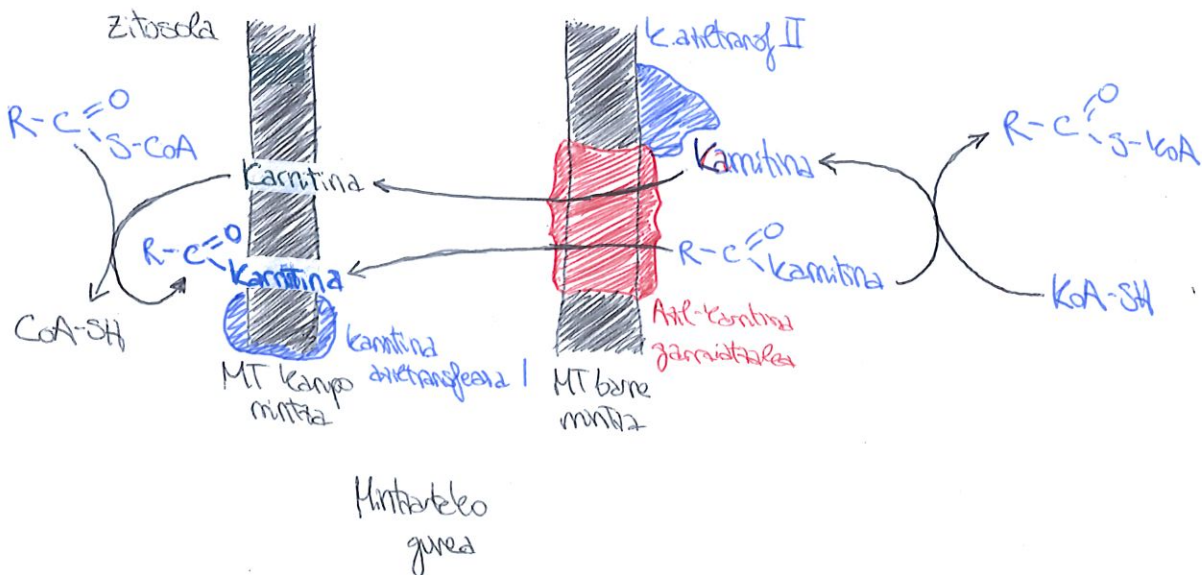 Zitosola
K. aziltransf II
R-C=O
S-CoA
R-C=O
S-KoA
Karnitina
Karnitina
R-C=O
Karnitina
R-C=O
Karnitina
CoA-SH
KoA-SH
Karnitina
aziltransferasa I
Azil-Karnitina
garraiatzailea
MT kanpo
mintza
MT barne
mintza
Mintzarteko
gunea